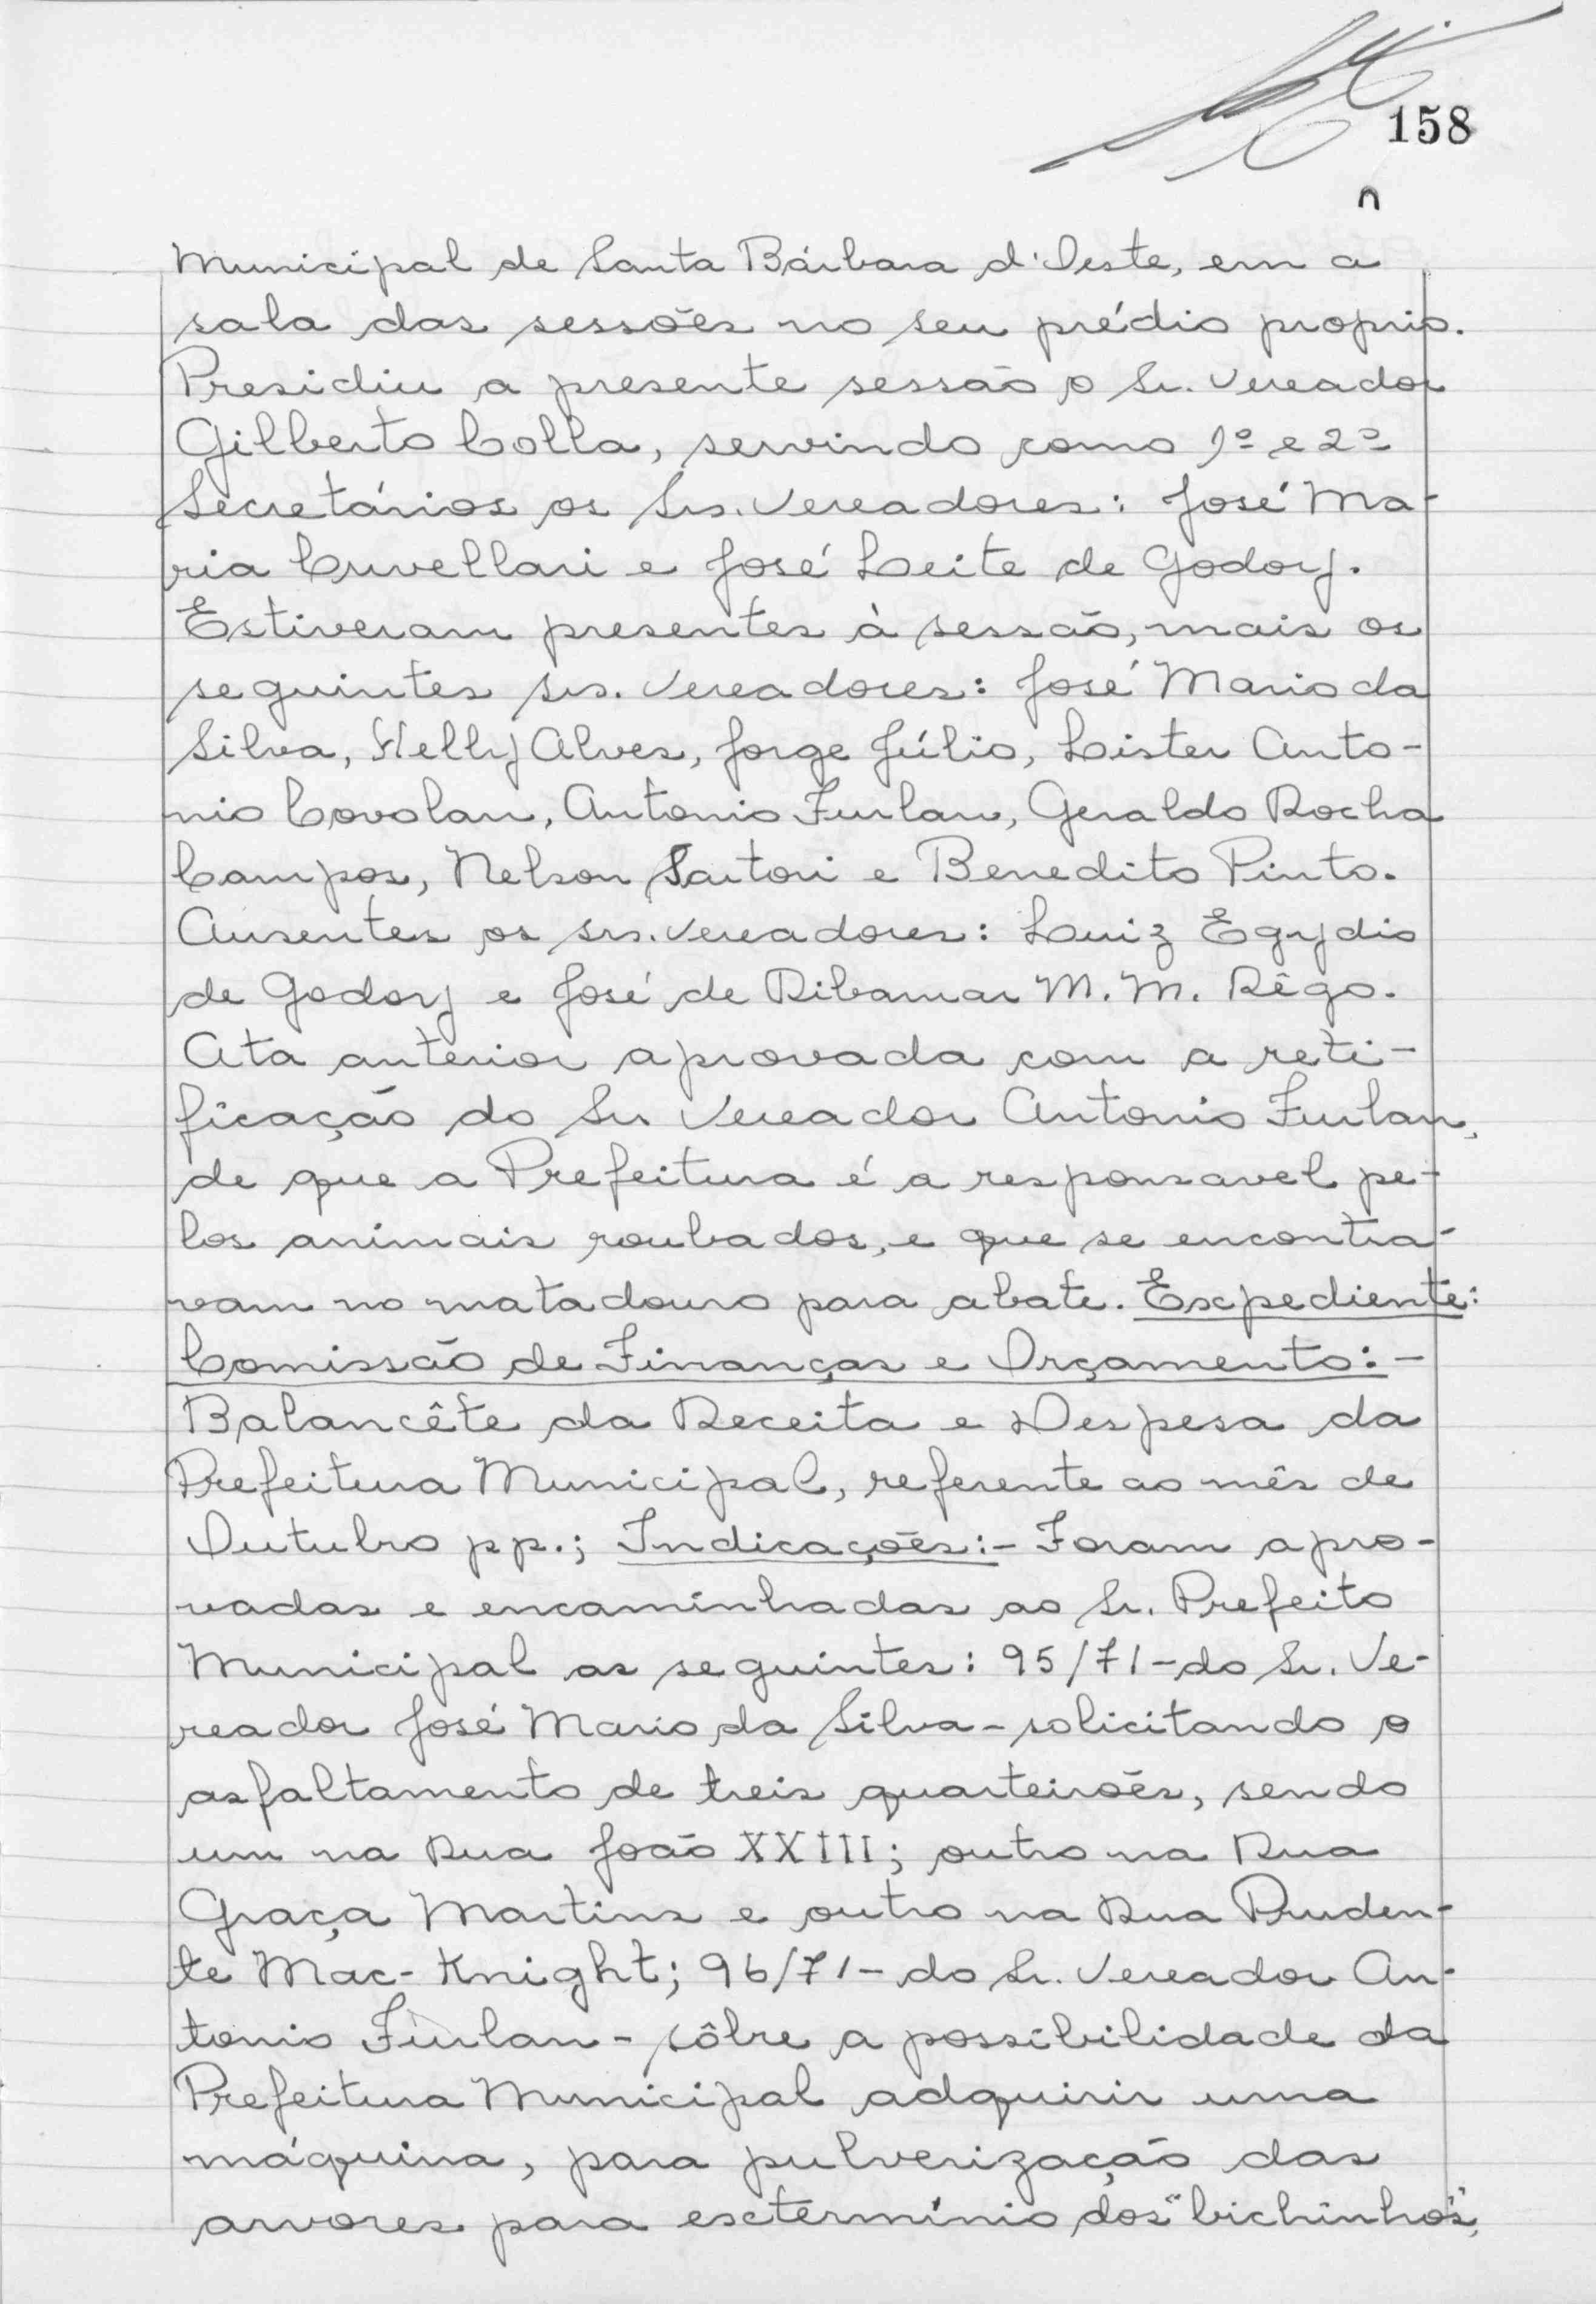 158
Municipal de Santa Bárbara d'Oeste, em a
sala das sessões no seu prédio proprio.
Presidiu a presente sessão o Sr. Vereador
Gilberto Colla, servindo como 1º e 2º
Secretários os Srs. Vereadores: José Ma-
ria Cruvellari e José Leite de Godoy.
Estiveram presentes à sessão, mais os
seguintes srs. Vereadores: José Mario da
Silva, Helly Alves, Jorge Júlio, Lister Anto-
nio Covolan, Antonio Furlan, Geraldo Rocha
Campos, Nelson Sartori e Benedito Pinto.
Ausentes os srs. Vereadores: Luiz Egydio
de Godoy e José de Ribamar M. M. Rêgo.
Ata anterior aprovada com a reti-
ficação do Sr Vereador Antonio Furlan,
de que a Prefeitura é a responsavel pe-
los animais roubados, e que se encontra-
vam no matadouro para abate. Expediente:
Comissão de Finanças e Orçamento:-
Balancête da Receita e Despesa da
Prefeitura Municipal, referente ao mês de
Outubro pp.; Indicações:- Foram apro-
vadas e encaminhadas ao Sr. Prefeito
Municipal as seguintes: 95/71- do Sr. Ve-
reador José Mario da Silva - solicitando o
asfaltamento de treis quarteirões, sendo
um na Rua João XXIII; outro na Rua
Graça Martins e outro na Rua Pruden-
te Mac-Knight; 96/71- do Sr. Vereador An-
tonio Furlan - sôbre a possibilidade da
Prefeitura Municipal adquirir uma
máquina, para pulverização das
arvores para extermínio dos "bichinhos",